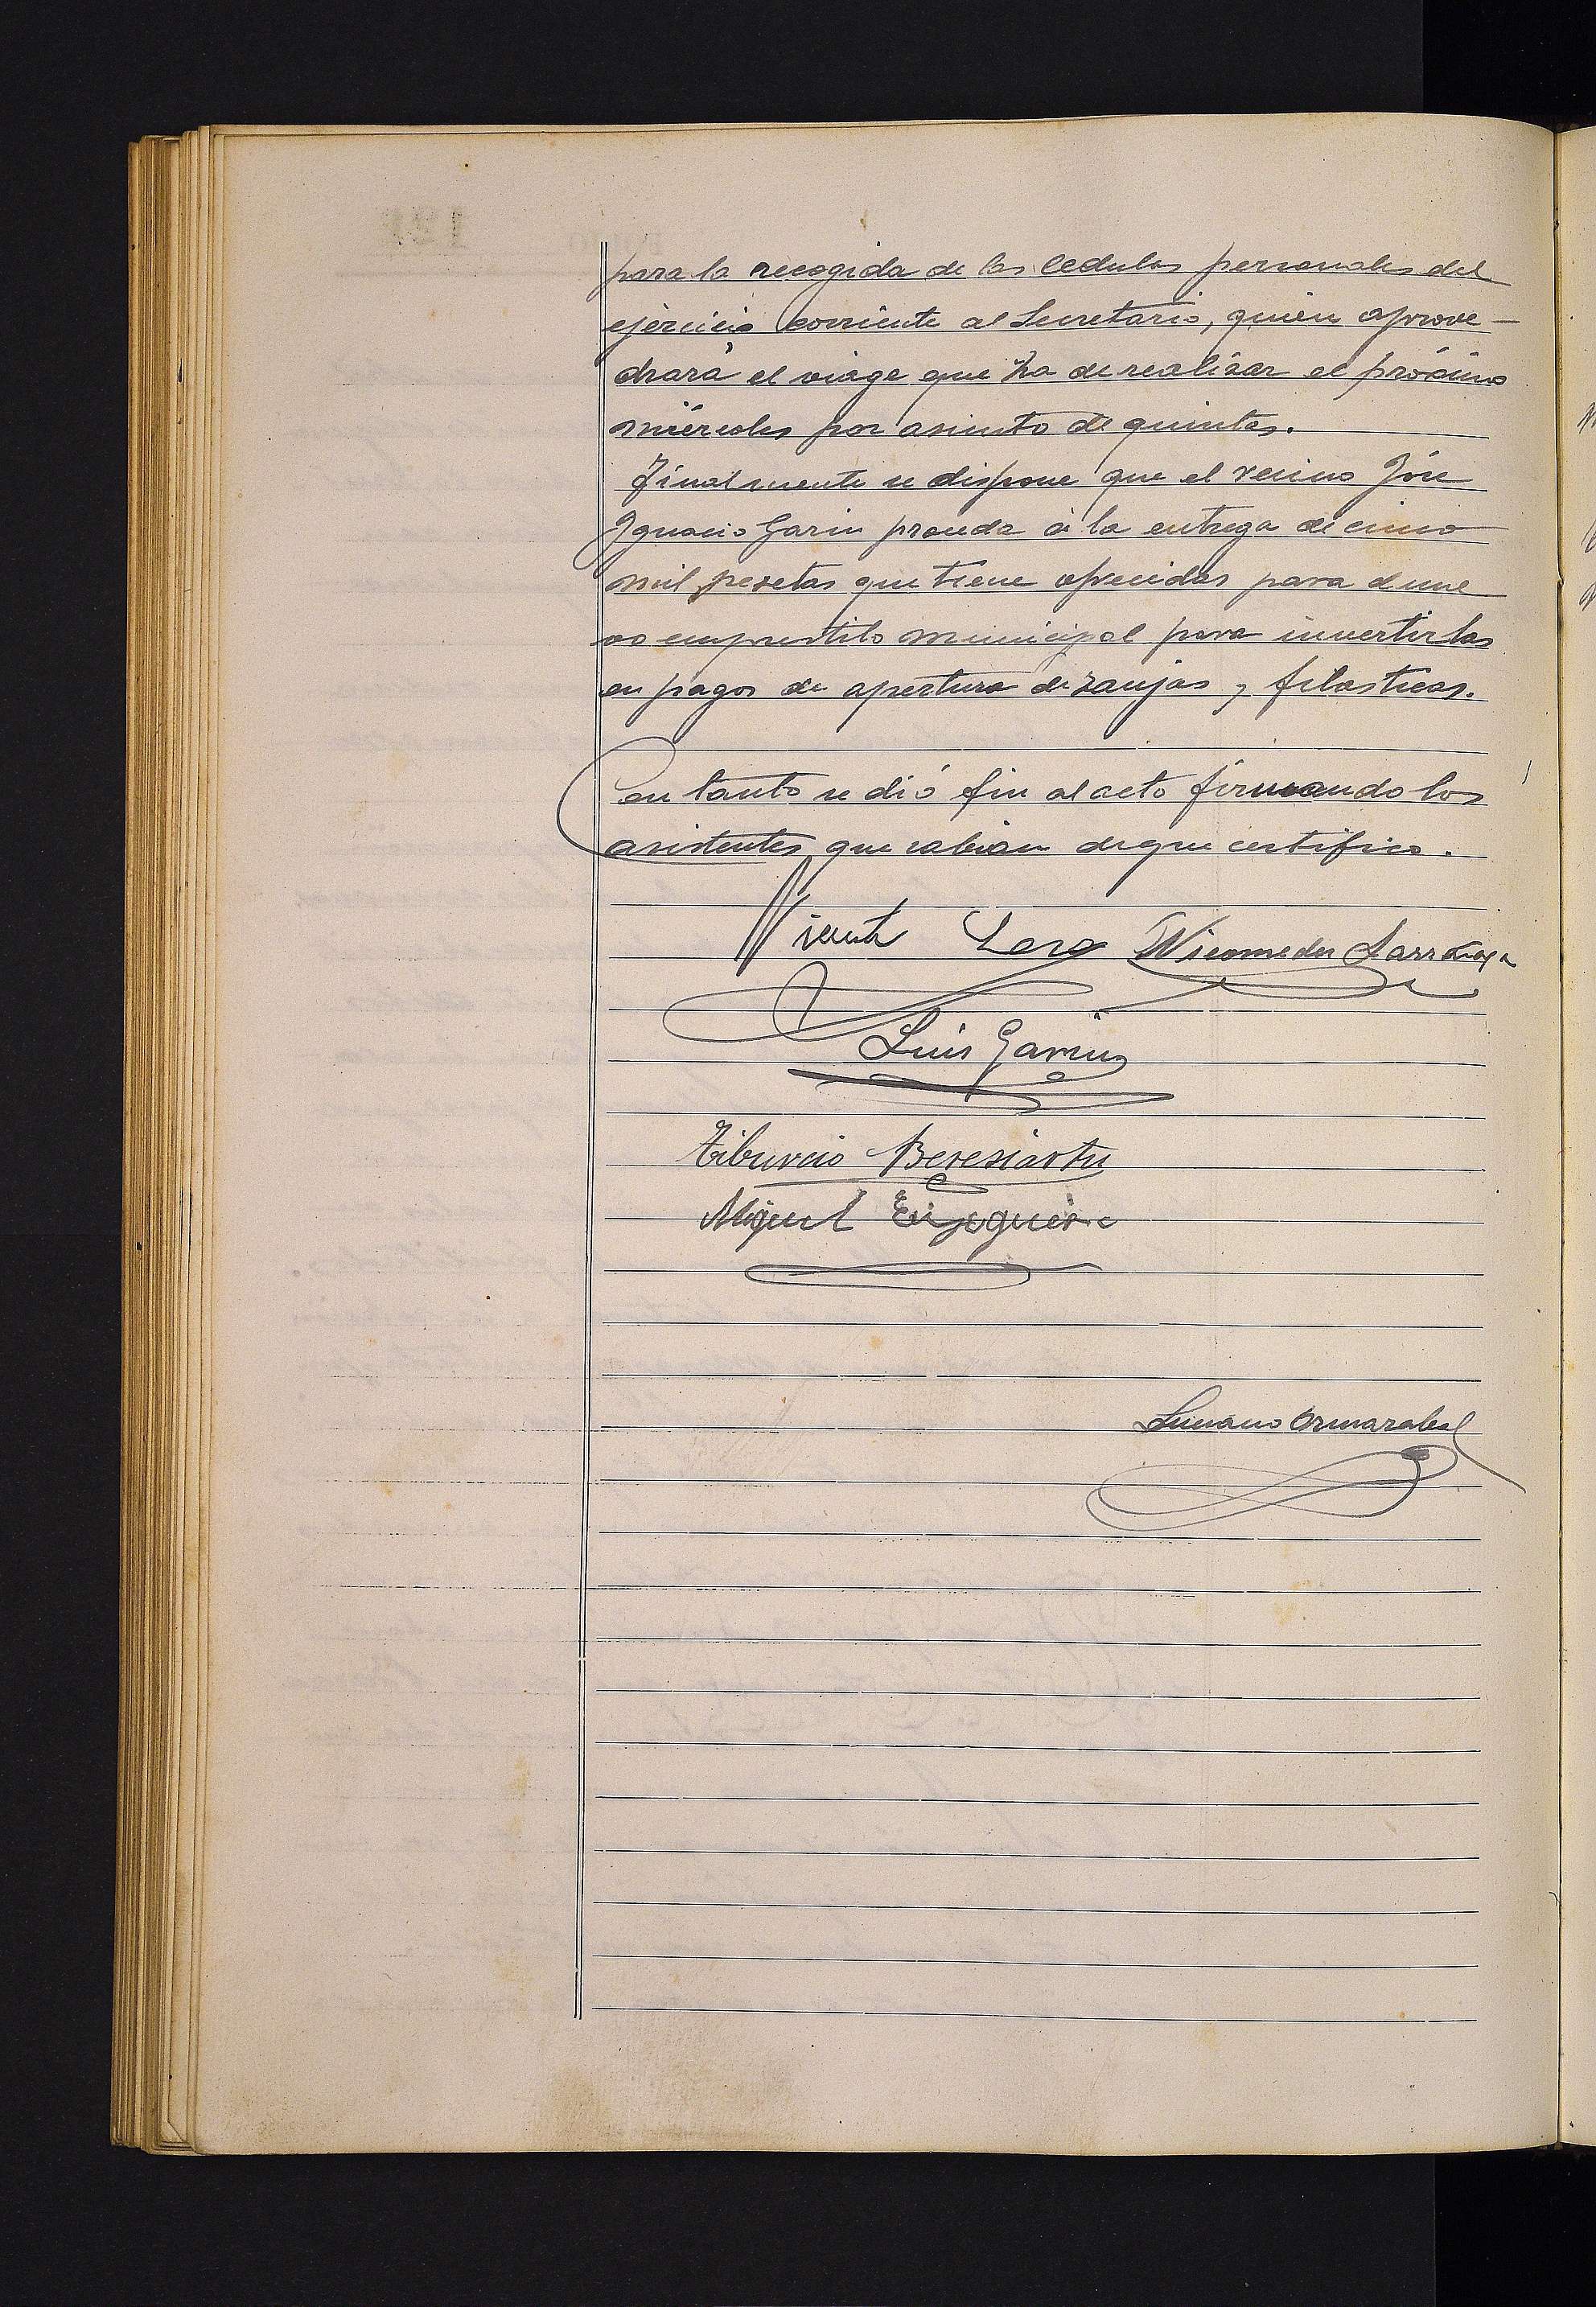 para la recogida de las cedulas personales del
ejercicio corriente al Secretario, quien aprove-
chará el viage que ha de realizar el próximo
miércoles por asunto de quintas.
Finalmente se dispone que el vecino José
Ignacio Garin proceda á la entrega de cinco
mil pesetas que tiene ofrecidas para el nue
vo emprestito municipal para invertirlas
en pagos de apertura de zanjas y filasticas.
En tanto se dió fin al acto firmando los
asistentes que sabian de que certifico.
Vicente Lasa Nicomedes Larrañaga
Luis Garin
Tiburcio Beresiartu
Miguel Eizaguirre
Luciano Ormazabal